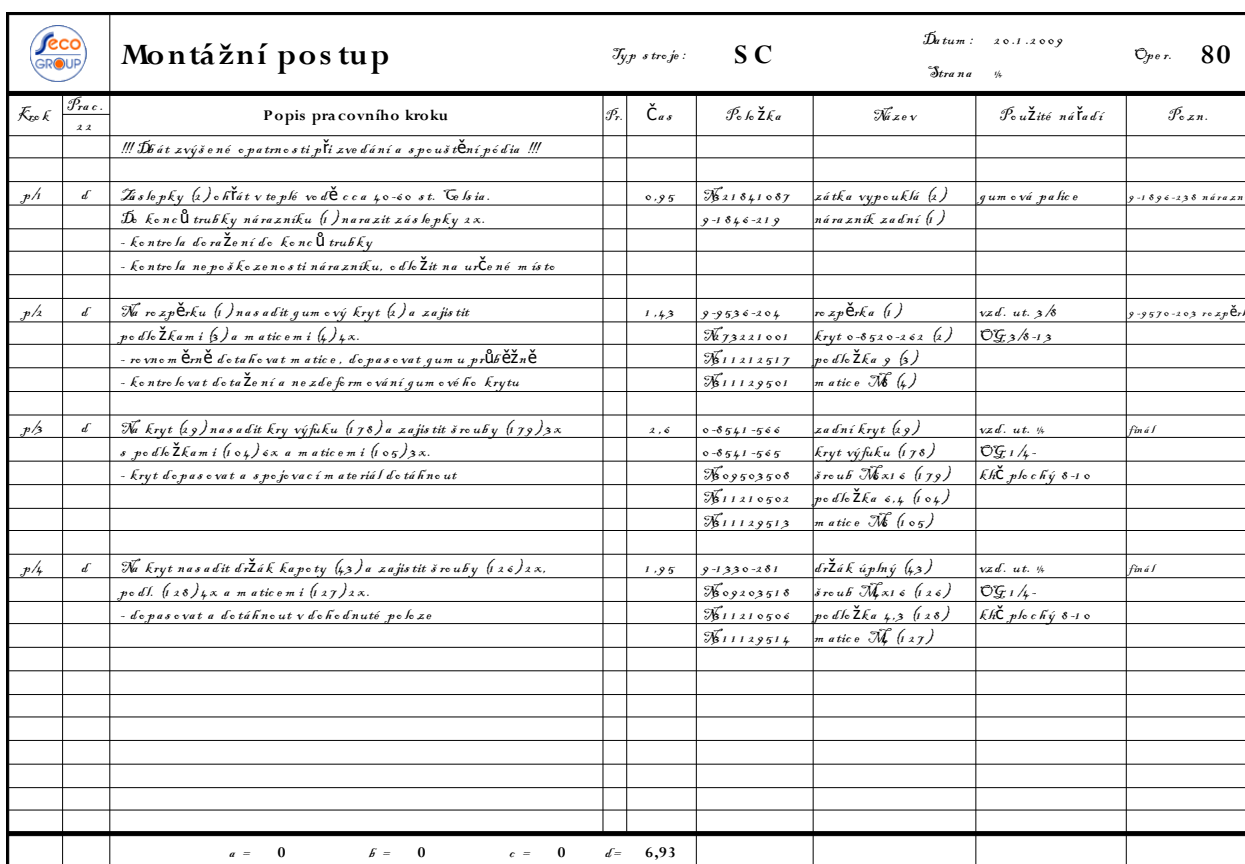 Seco GROUP
Montážní postup Typ stroje: SC Datum: 20.1.2009 Oper. 80
Strana ¼
Krok Prac. 22 Popis pracovního kroku Pr. Čas Položka Název Použité nářadí Pozn.
!!! Dbát zvýšené opatrnosti při zvedání a spouštění pódia !!!
p/1 d Záslepky (2) ohřát v teplé vodě cca 40-60 st. Celsia. 0,95 N321841087 zátka vypouklá (2) gumová palice 9-1896-238 nárazn
Do konců trubky nárazníku (1) narazit záslepky 2x. 9-1846-219 nárazník zadní (1)
- kontrola doražení do konců trubky
- kontrola nepoškozenosti nárazníku, odložit na určené místo
p/2 d Na rozpěrku (1) nasadit gumový kryt (2) a zajistit 1,43 9-9536-204 rozpěrka (1) vzd. ut. 3/8 9-9570-203 rozpěrk
podložkami (3) a maticemi (4) 4x. N273221001 kryt 0-8520-262 (2) OG 3/8-13
- rovnoměrně dotahovat matice, dopasovat gumu průběžně N311212517 podložka 9 (3)
- kontrolovat dotažení a nezdeformování gumového krytu N311129501 matice M8 (4)
p/3 d Na kryt (29) nasadit kry výfuku (178) a zajistit šrouby (179) 3x 2,6 0-8541-566 zadní kryt (29) vzd. ut. ¼ finál
s podložkami (104) 6x a maticemi (105) 3x. 0-8541-565 kryt výfuku (178) OG 1/4-
- kryt dopasovat a spojovací materiál dotáhnout N309503508 šroub M6x16 (179) klíč plochý 8-10
N311210502 podložka 6,4 (104)
N311129513 matice M6 (105)
p/4 d Na kryt nasadit držák kapoty (43) a zajistit šrouby (126) 2x, 1,95 9-1330-281 držák úplný (43) vzd. ut. ¼ finál
podl. (128) 4x a maticemi (127) 2x. N309203518 šroub M4x16 (126) OG 1/4-
- dopasovat a dotáhnout v dohodnuté poloze N311210506 podložka 4,3 (128) klíč plochý 8-10
N311129514 matice M4 (127)
a = 0 b = 0 c = 0 d = 6,93